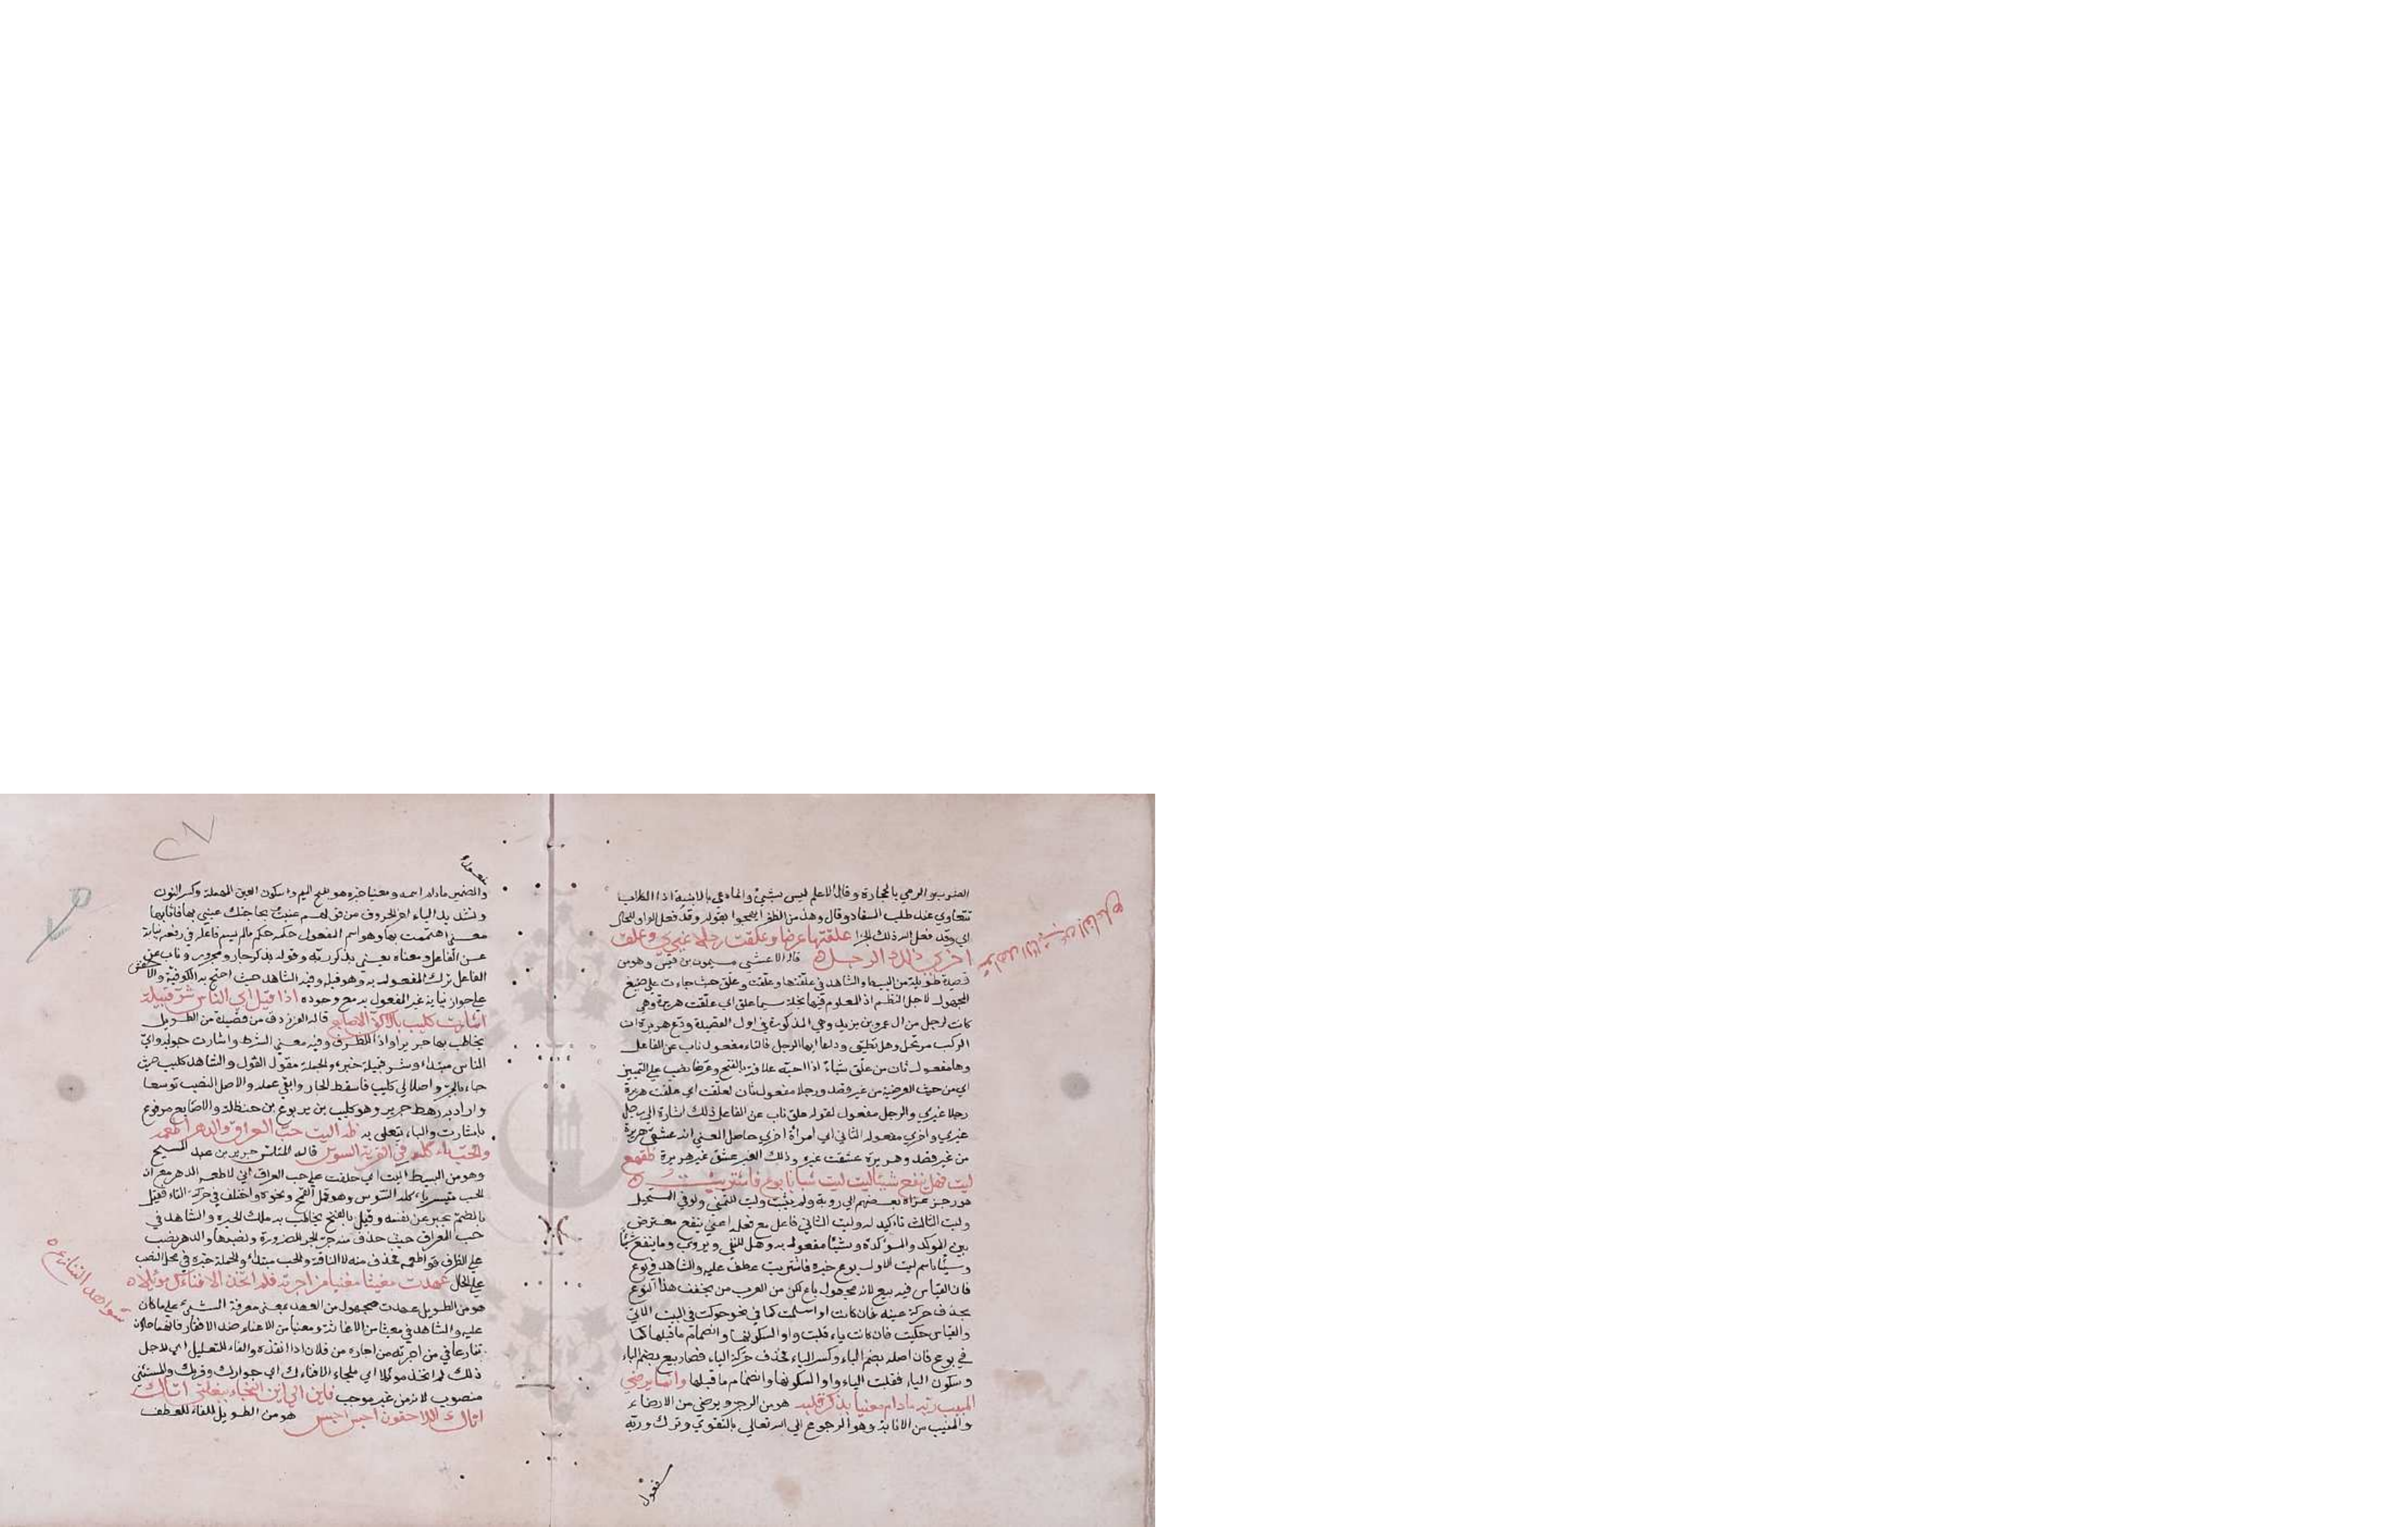 الضرب والرمي بالحجارة وقال الاعلم ليس بشيئ وانما دعي بالابنية اذا الكلاب
تتعاوي عند طلب السفاد وقال وهذا من الظفر ايهجوا بقوله وقد فعل الواو للحال
اي وقد فعل الله ذلك الجزا علقتها عرضا وعلقت رجلا غيري وعلق
اخري ذلك الرجل ه قاله الاعشي ميمون بن قيس وهو من
قصيدة طويلة من البسيط والشاهد في علقتها وعلقت وعلق حيث جاءت علي صيغ
المجهول لاجل النظم اذ المعلوم فيها يخله سيما علق اي علقت هريرة وهي
كانت لرجل من ال عمرو بن يزيد وهي المذكورة في اول القصيدة ودع هريرة ان
الركب مرتحل وهل تطيق وداعا ايها الرجل فالتاء مفعول ناب عن الفاعل
وها مفعول ثان من علق شيئا اذا احبه علاقة بالفتح وعرضا نصب علي التمييز
اي من حيث العرضية من غير قصد ورجلا مفعول ثان لعلقت اي علقت هريرة
رجلا غيري والرجل مفعول لقوله علق ناب عن الفاعل ذلك اشارة الي رجل
غيري واخري مفعوله الثاني اي امرأة اخري حاصل المعني انه عشق هريرة
من غير قصد وهريرة عشقت غيره وذلك الغير عشق غير هريرة
ليت وهل ينفع شيئا ليت ليت شبابا بوع فاشتريت ه
هو رجز عزاه بعضهم الي روبة ولم يثبت وليت للتمني ولو في المستحيل
وليت الثالث تاكيد له وليت الثاني فاعل مع فعله اعني ينفع معترض
بين الموكد والموكدة وشيئا مفعول به وهل للنفي ويروي وما ينفع شيئا
وشبابا اسم ليت الاول بوع خبره فاشتريت عطف عليه والشاهد في بوع
فان القياس فيه بيع لانه مجهول باع لكن من العرب من يخفف هذا النوع
بحذف حركة عينه فان كانت واوا سلمت كما في نحو حوكت في البيت الاتي
والقياس حيكت فان كانت ياء قلبت واوا لسكونها وانضمام ما قبلها كما
في بوع فان اصله بضم الباء وكسر الياء فحذف حركة الياء فصار بيع بضم الباء
وسكون الياء فقلبت الياء واوا لسكونها وانضمام ما قبلها وانما يرضي
المنيب ربه ما دام معنيا بذكر قلبه هو من الرجز ويرضي من الارضاء
والمنيب من الانابة وهو الرجوع الي الله تعالي بالتقوي وترك وربه
مفعول
شواهد النائب عن الفاعل ه
مفعوله
والضمير مادام اسمه ومعنيا خبره هو بفتح الميم وسكون العين المهملة وكسر النون
وتشديد الياء اخر الحروف من قولهم عنيت بحاجتك عيني بها فانا بها
معني اهتممت بها وهو اسم المفعول حكمه حكم مالم يسم فاعله في رفعه نيابة
عن الفاعل ومعناه يعني بذكر ربه وقوله بذكر جار ومجرور وناب عن
الفاعل ترك المفعول به وهو قلبه وفيه الشاهد حيث احتج به الكوفية والاخفش
علي جواز نيابة غير المفعول به مع وجوده اذا قيل اي الناس شر قبيلة
اشارت كليب بالاكف الاصابع قاله الفرزدق من قصيدة من الطويل
يخاطب بها جريرا واذا للظرف وفيه معني الشرط واشارت جوابه واي
الناس مبتداء وشر قبيلة خبره والجملة مقول القول والشاهد كليب حيث
جاء بالجر واصله الي كليب فاسقط الجار وابقي عمله والاصل النصب توسعا
واراد به رهط جرير وهو كليب بن يربوع بن حنظلة والاصابع مرفوع
باشارت والباء تتعلق به اليت حب العراق والدهر اطعمه
والحب ياكله في القرية السوس قاله المتلمس جرير بن عبد المسيح
وهو من البسيط اليت اي حلفت علي حب العراق اني لا اطعمه الدهر مع ان
الحب متيسر ياكله السوس وهو قمل القمح ونحوه واختلف في حركة التاء فقيل
بالضم يخبر عن نفسه وقيل بالفتح يخاطب به ملك الحيرة والشاهد في
حب العراق حيث حذف منه حرف الجر للضرورة ونصبها والدهر نصب
علي الظرف واطعمه فحذف منه لا النافية والحب مبتداء والجملة خبره في محل النصب
علي الحال عهدت مغيثا مغنيا من اجرته فلم اتخذ الا فناءك موئلا ه
هو من الطويل عهدت مجهول من العهد بمعني معرفة الشيء علي ما كان
عليه والشاهد في مغيثا من الاغاثة ومغنيا من الاغناء ضد الافقار فانهما
تنازعا في من اجرته من اجاره من فلان اذا انقذه والفاء للتعليل اي لاجل
ذلك لم اتخذ موئلا اي ملجاء الا فناءك اي جوارك وقربك والمستثني
منصوب لانه من غير موجب فاين الي اين النجاء ببغلتي اتاك
اتاك اللاحقون احبس احبس هو من الطويل الفاء للعطف
شواهد التنازع ه